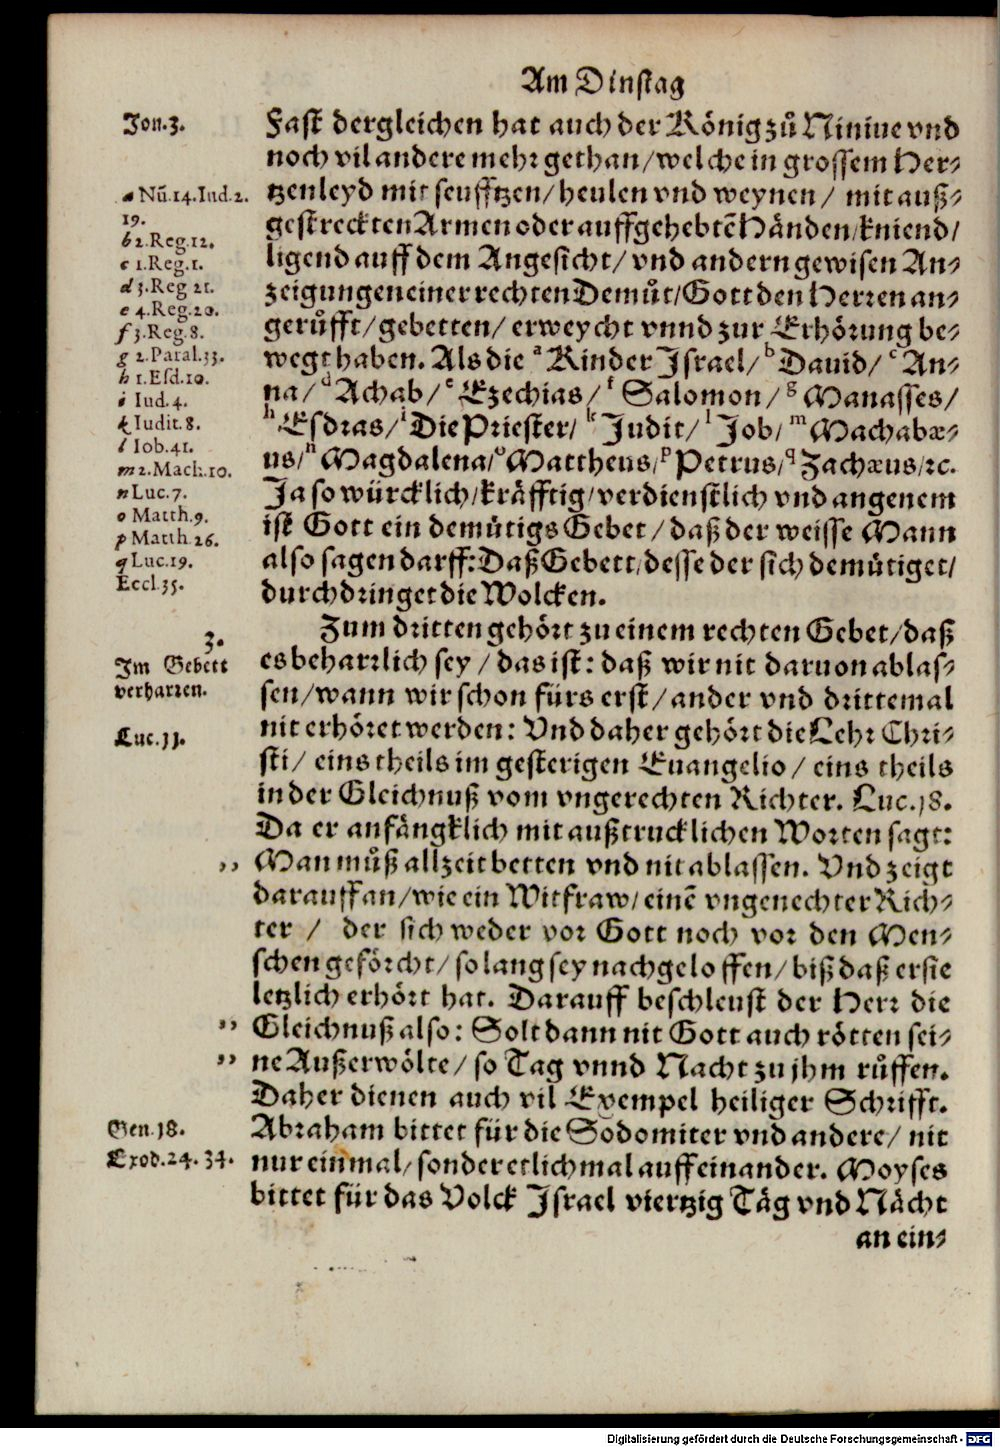 Am Dinstag
Jon.3.
Fast dergleichen hat auch der König zů Niniue vnd
noch vil andere mehr gethan/welche in grossem Her-
tzenleyd mit seufftzen/heulen vnd weynen/ mit auß-
gestreckten Armen oder auffgehebtē Händen/kniend/
ligend auff dem Angesicht/ vnd andern gewisen An-
zeigungen einer rechten Demůt/Gott den Herren an-
gerůfft/gebetten/ erweycht vnnd zur Erhörung be-
wegt haben. Als die ᵃ Kinder Israel/ ᵇ Dauid/ ᶜ An-
na/ ᵈ Achab/ ᵉ Ezechias/ ᶠ Salomon/ ᵍ Manasses/
ʰ Esdras/ ⁱ Die Priester/ ᵏ Judit/ ˡ Job/ ᵐ Machabæ-
us/ ⁿ Magdalena/ ᵒ Mattheus/ ᵖ Petrus/ ᑫ Zachæus/ꝛc.
Ja so würcklich/kräfftig/verdienstlich vnd angenem
ist Gott ein demütigs Gebet/ daß der weisse Mann
also sagen darff: Daß Gebett/desse der sich demütiget/
durchdringet die Wolcken.
a Nū.14.Iud.2.
19.
b 2.Reg.12.
c 1.Reg.1.
d 3.Reg 21.
e 4.Reg.20.
f 3.Reg.8.
g 2.Paral.33.
h 1.Esd.10.
i Iud.4.
k Iudit.8.
l Iob.41.
m 2.Mach.10.
n Luc.7.
o Matth.9.
p Matth.26.
q Luc.19.
Eccl.35.
Zum dritten gehört zu einem rechten Gebet/daß
es beharrlich sey/ das ist: daß wir nit daruon ablas-
sen/wann wir schon fürs erst/ ander vnd drittemal
nit erhöret werden: Vnd daher gehört die Lehr Chri-
sti/ eins theils im gesterigen Euangelio/ eins theils
in der Gleichnuß vom vngerechten Richter. Luc.18.
Da er anfängklich mit außtrucklichen Worten sagt:
,, Man můß allzeit betten vnd nit ablassen. Vnd zeigt
darauff an/wie ein Witfraw/einē vngenechter Rich-
ter / der sich weder vor Gott noch vor den Men-
schen geförcht/so lang sey nachgeloffen/biß daß er sie
letzlich erhört hat. Darauff beschleust der Herr die
,, Gleichnuß also: Solt dann nit Gott auch rötten sei-
,, ne Außerwölte/ so Tag vnnd Nacht zu jhm růffen.
Daher dienen auch vil Exempel heiliger Schrifft.
Abraham bittet für die Sodomiter vnd andere/ nit
nur einmal/sonder etlichmal auffeinander. Moyses
bittet für das Volck Israel viertzig Täg vnd Nächt
3.
Im Gebett
verharren.
Luc.11.
Gen.18.
Exod.24.34.
an ein-
Digitalisierung gefördert durch die Deutsche Forschungsgemeinschaft - DFG